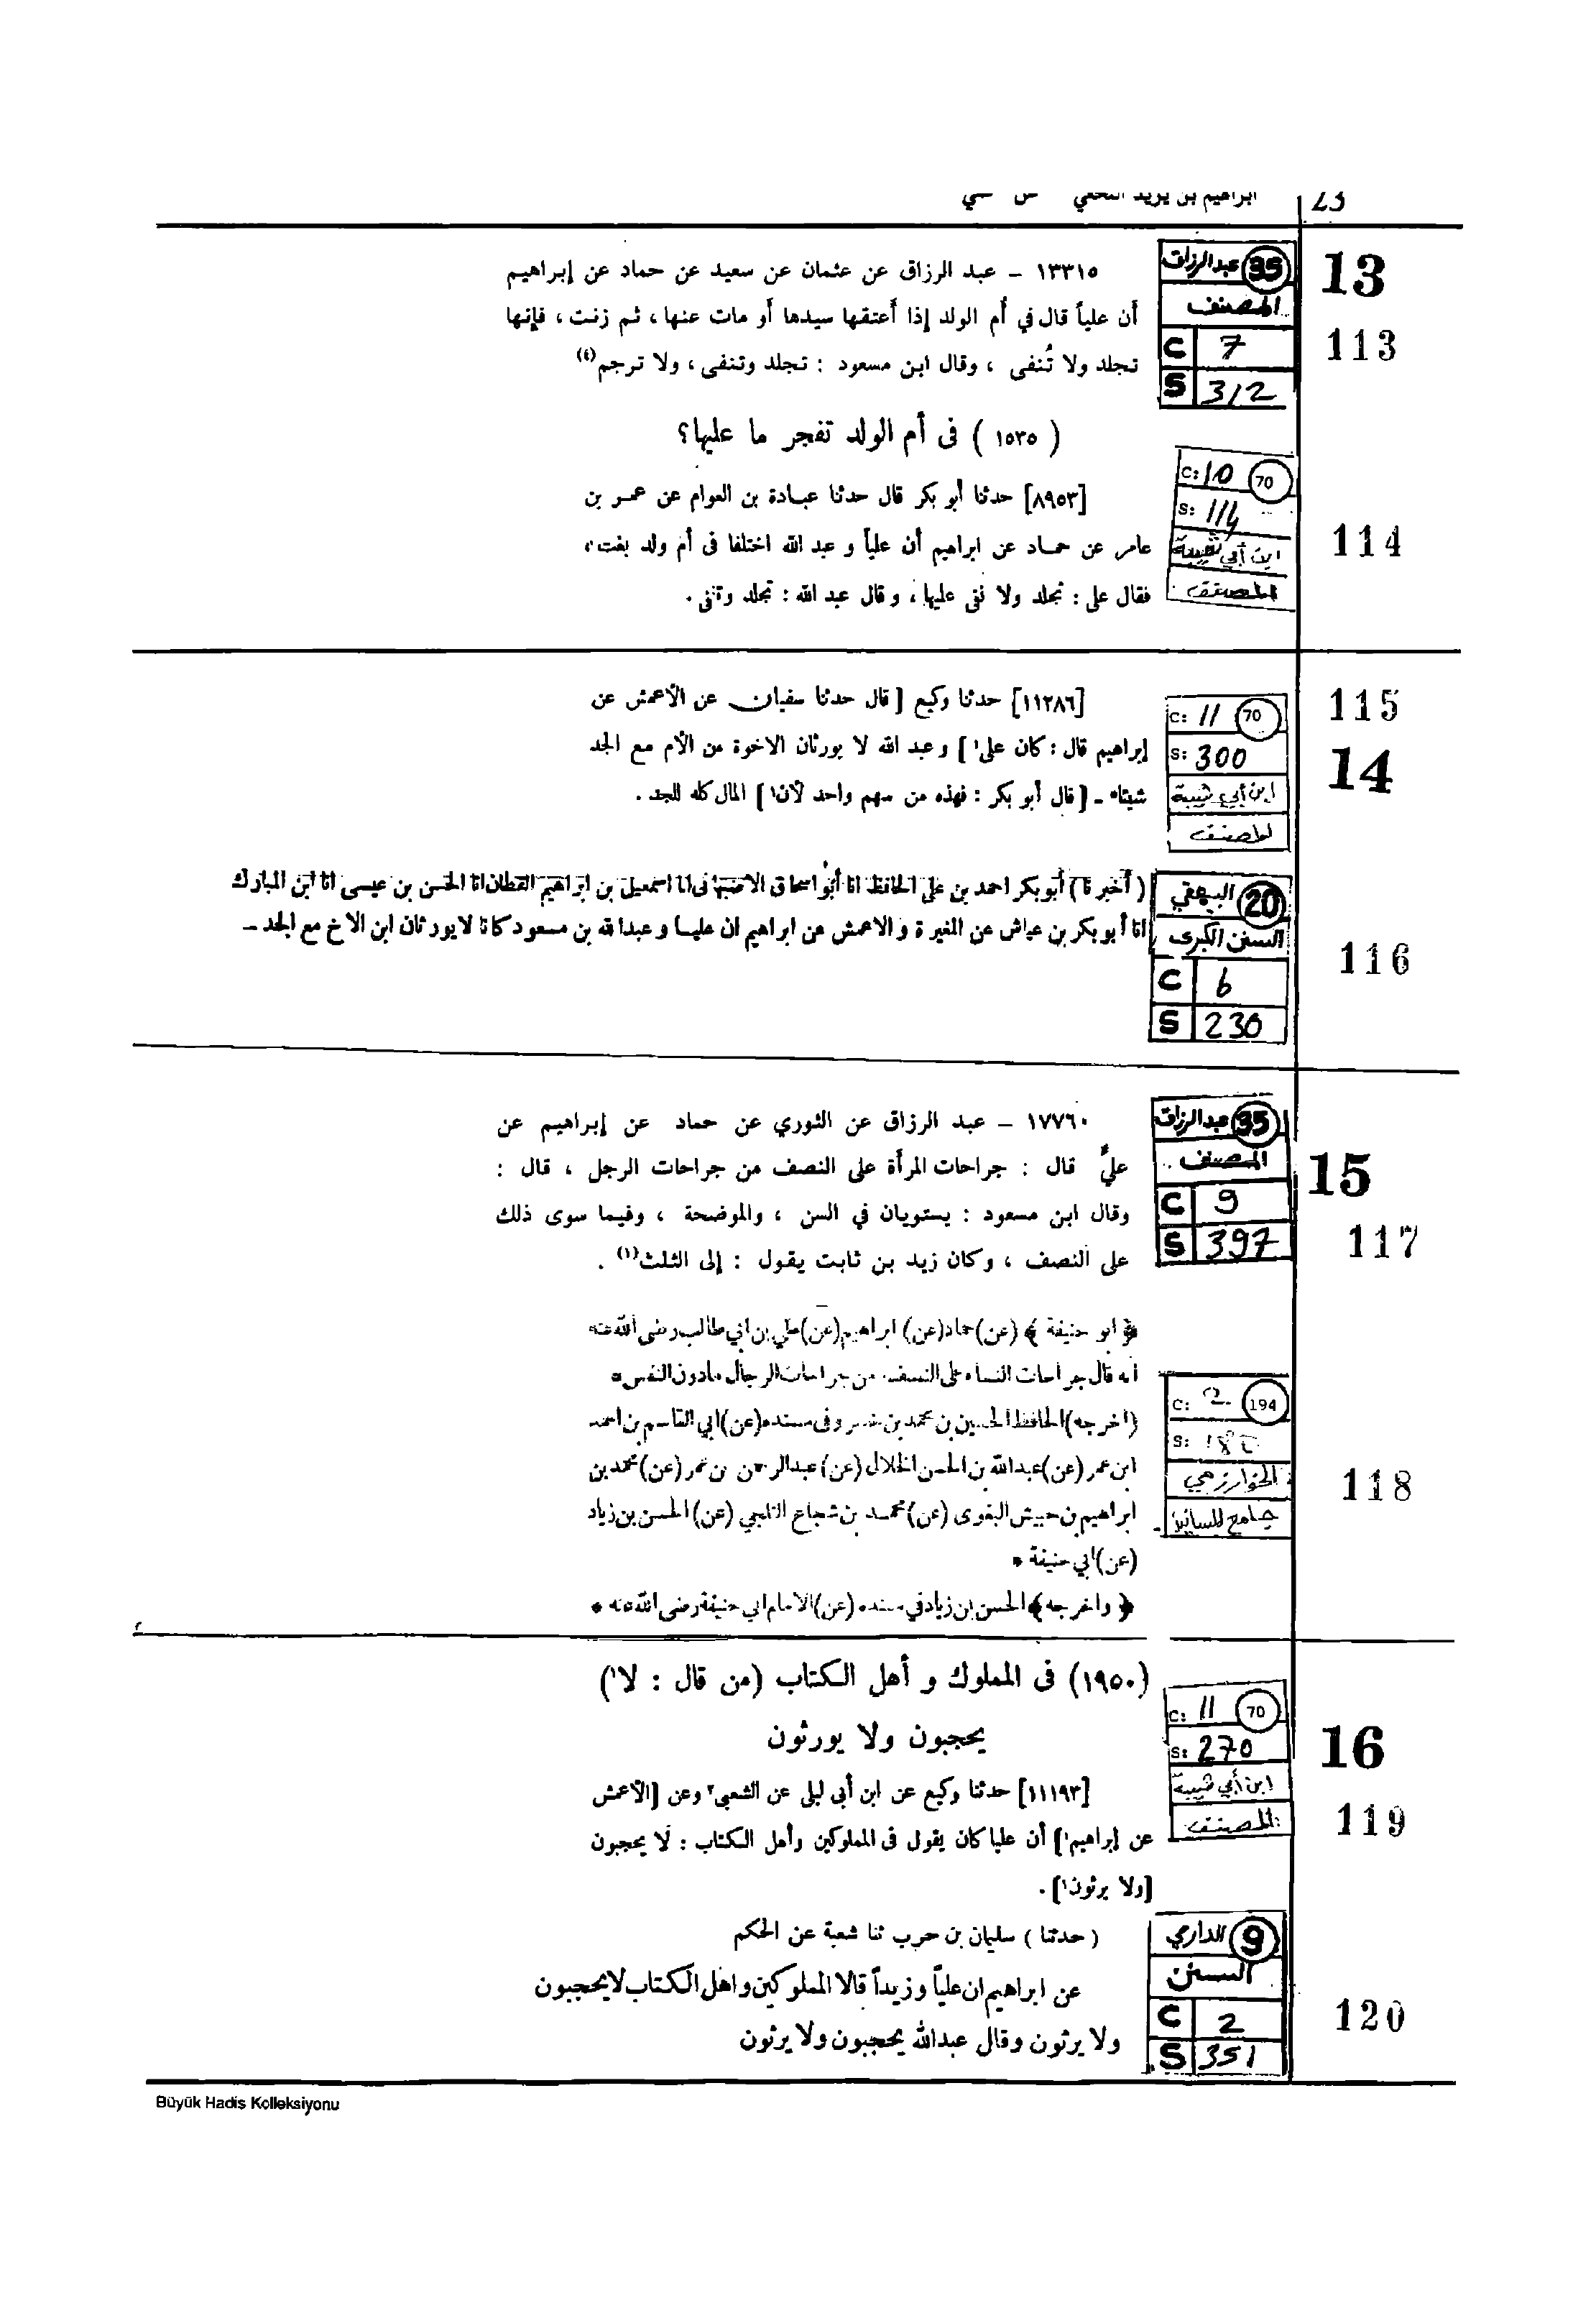 ابراهيم بن يزيد النخعي
13
113
35 عبدالرزاق
المصنف
C 7
S 312
١٣٣١٥ – عبد الرزاق عن عثمان عن سعيد عن حماد عن إبراهيم
أن علياً قال في أم الولد إذا أعتقها سيدها أو مات عنها ، ثم زنت ، فإنها
تجلد ولا تُنفى ، وقال ابن مسعود : تجلد وتنفى ، ولا ترجم(٤)
( ١٥٣٥ ) فى أم الولد تفجر ما عليها؟
C: 10 70
S: 114
ابن أبي شيبة
المصنف
114
[٨٩٥٣] حدثنا أبو بكر قال حدثنا عبادة بن العوام عن عمر بن
عامر عن حماد عن ابراهيم أن علياً و عبد الله اختلفا فى أم ولد بغت ،
فقال على : تجلد ولا نفى عليها ، وقال عبد الله : تجلد وتنفى .
115
14
C: 11 70
S: 300
ابن أبي شيبة
المصنف
[١١٢٨٦] حدثنا وكيع [ قال حدثنا سفيان عن الأعمش عن
إبراهيم قال : كان على١ ] وعبد الله لا يورثان الاخوة من الأم مع الجد
شيئا - [ قال أبو بكر : فهذه من سهم واحد لأن١ ] المال كله للجد .
20 البيهقي
السنن الكبرى
C 6
S 230
116
( أخبرنا ) أبو بكر احمد بن علي الحافظ انا أبو اسحاق الاصبهانى انا اسمعيل بن ابراهيم القطان انا الحسن بن عيسى انا ابن المبارك
انا أبو بكر بن عياش عن المغيرة والاعمش عن ابراهيم ان عليا وعبدالله بن مسعود كانا لا يورثان ابن الاخ مع الجد –
35 عبدالرزاق
المصنف
C 9
S 397
15
117
١٧٧٦٠ – عبد الرزاق عن الثوري عن حماد عن إبراهيم عن
عليّ قال : جراحات المرأة على النصف من جراحات الرجل ، قال :
وقال ابن مسعود : يستويان في السن ، والموضحة ، وفيما سوى ذلك
على النصف ، وكان زيد بن ثابت يقول : إلى الثلث(١) .
﴿ ابو حنيفة ﴾ (عن) حماد (عن) ابراهيم (عن) علي بن ابي طالب رضى الله عنه
انه قال جراحات النساء على النصف من جراحات الرجال مادون النفس *
(اخرجه) الحافظ الحسين بن محمد بن خسرو فى مسنده (عن) ابي القاسم بن احمد
ابن عمر (عن) عبدالله بن الحسن الخلال (عن) عبدالرحمن بن عمر (عن) محمد بن
ابراهيم بن حبيش البغوى (عن) محمد بن شجاع الثلجي (عن) الحسن بن زياد
(عن) ابي حنيفة *
﴿ واخرجه ﴾ الحسن بن زياد في مسنده (عن) الامام ابي حنيفة رضى الله عنه *
C: 2 194
S:
الخوارزمي
جامع المسانيد
118
(١٩٥٠) فى المملوك و أهل الكتاب (من قال : لا١)
يحجبون ولا يورثون
C: 11 70
S: 270
ابن أبي شيبة
المصنف
16
119
[١١١٩٣] حدثنا وكيع عن ابن أبى ليلى عن الشعبى٢ وعن [الأعمش
عن إبراهيم١ ] أن عليا كان يقول فى المملوكين وأهل الكتاب : لا يحجبون
[ولا يرثون١] .
9 الدارمي
السنن
C 2
S 351
120
( حدثنا ) سليمان بن حرب ثنا شعبة عن الحكم
عن ابراهيم ان علياً وزيداً قالا المملوكين واهل الكتاب لا يحجبون
ولا يرثون وقال عبدالله يحجبون ولا يرثون
Büyük Hadis Kolleksiyonu